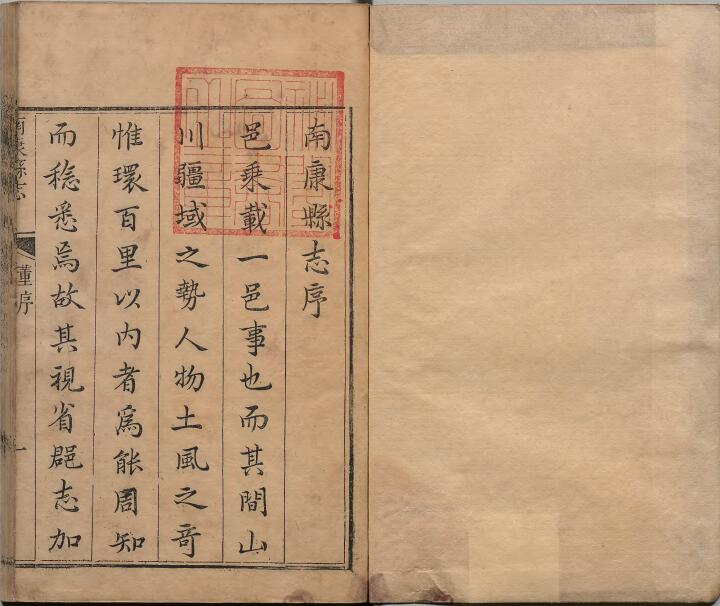 南康縣志序
邑乘載一邑事也而其間山
川疆域之勢人物土風之竒
惟環百里以内者爲能周知
而稔悉焉故其視省郡志加
南康縣志
董序
一